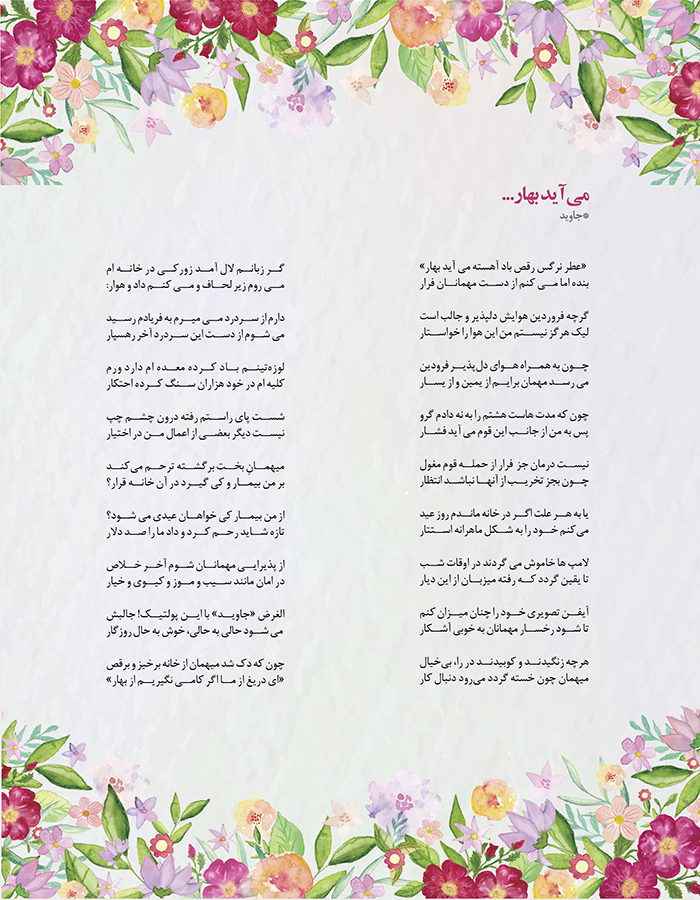 می‌آید بهار...
*جاوید
«عطر نرگس رقص باد آهسته می آید بهار»
بنده اما می کنم از دست مهمانان فرار
گرچه فروردین هوایش دلپذیر و جالب است
لیک هرگز نیستم من این هوا را خواستار
چون به همراه هوای دل‌پذیر فرودین
می رسد مهمان برایم از یمین و از یسار
چون که مدت هاست هشتم را به نه دادم گرو
پس به من از جانب این قوم می آید فشار
نیست درمان جز فرار از حمله قوم مغول
چون بجز تخریب از آنها نباشد انتظار
یا به هر علت اگر در خانه ماندم روز عید
می‌کنم خود را به شکل ماهرانه استتار
لامپ ها خاموش می گردند در اوقات شب
تا یقین گردد که رفته میزبان از این دیار
آیفن تصویری خود را چنان میزان کنم
تا شود رخسار مهمانان به خوبی آشکار
هرچه زنگیدند و کوبیدند در را، بی‌خیال
میهمان چون خسته گردد می‌رود دنبال کار
گر زبانم لال آمد زورکی در خانه ام
می روم زیر لحاف و می کنم داد و هوار:
دارم از سردرد می میرم به فریادم رسید
می شوم از دست این سردرد آخر رهسپار
لوزه‌تینم باد کرده معده ام دارد ورم
کلیه ام در خود هزاران سنگ کرده احتکار
شست پای راستم رفته درون چشم چپ
نیست دیگر بعضی از اعمال من در اختیار
میهمان بخت برگشته ترحم می‌کند
بر من بیمار و کی گیرد در آن خانه قرار؟
از من بیمار کی خواهان عیدی می شود؟
تازه شاید رحم کرد و داد ما را صد دلار
از پذیرایی مهمانان شوم آخر خلاص
در امان مانند سیب و موز و کیوی و خیار
الغرض «جاوید» با این پولتیک! جالبش
می شود حالی به حالی، خوش به حال روزگار
چون که دک شد میهمان از خانه برخیز و برقص
«ای دریغ از ما اگر کامی نگیریم از بهار»